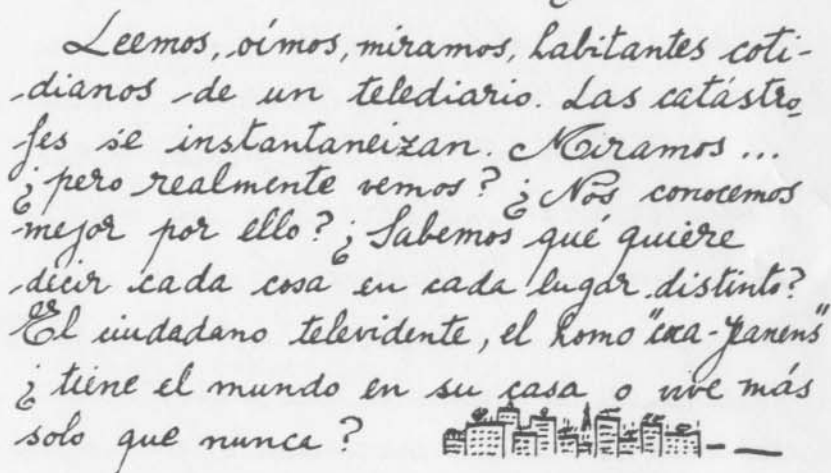 Leemos, oímos, miramos, habitantes coti-
dianos de un telediario. Las catástro-
fes se instantaneizan. Miramos...
¿pero realmente vemos? ¿Nos conocemos
mejor por ello? ¿Sabemos qué quiere
decir cada cosa en cada lugar distinto?
El ciudadano televidente, el homo "coca-jeanens"
¿tiene el mundo en su casa o vive más
solo que nunca?